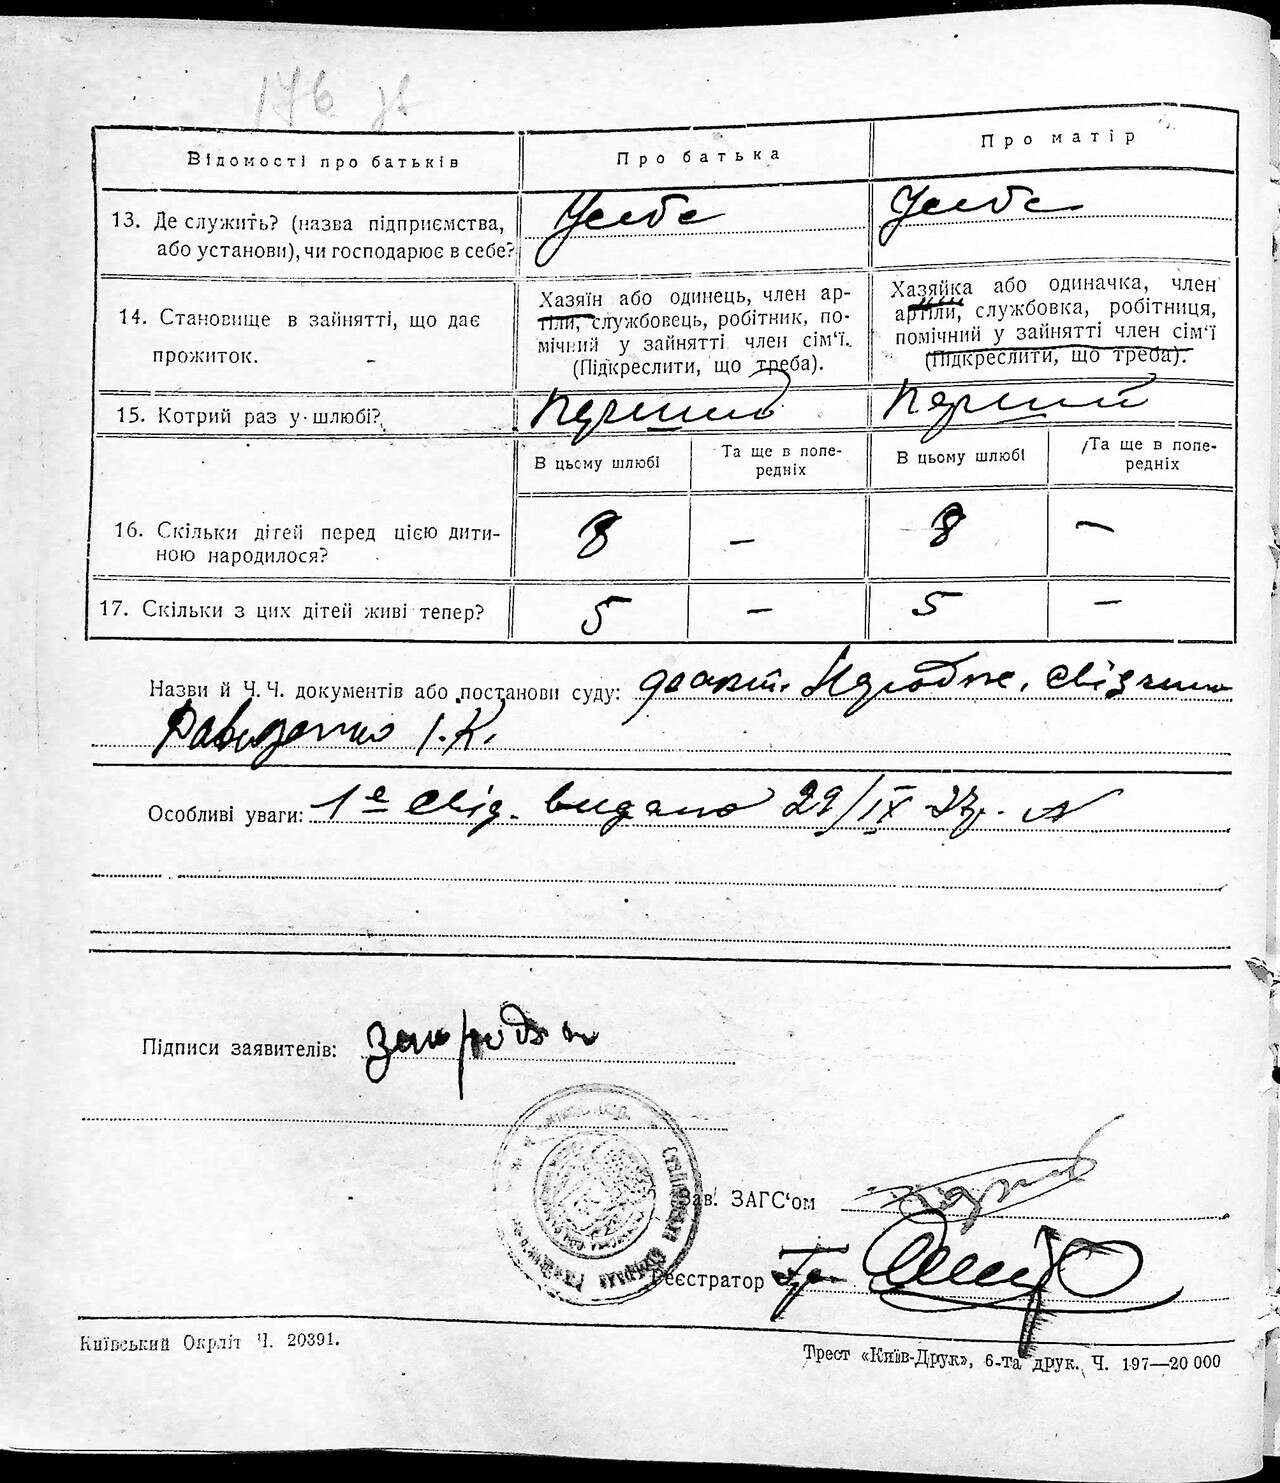 176 зв
Відомості про батьків
Про батька
Про матір
13. Де служить? (назва підприємства,
або установи), чи господарює в себе?
У себе
У себе
14. Становище в зайнятті, що дає
прожиток.
Хазяїн або одинець, член ар-
тіли, службовець, робітник, по-
мічний у зайнятті член сім'ї.
(Підкреслити, що треба).
Хазяйка або одиначка, член
артіли, службовка, робітниця,
помічний у зайнятті член сім'ї
(Підкреслити, що треба).
15. Котрий раз у шлюбі?
Перший
Перший
В цьому шлюбі
Та ще в попе-
редніх
В цьому шлюбі
Та ще в попе-
редніх
16. Скільки дітей перед цією дити-
ною народилося?
8 — 8 —
17. Скільки з цих дітей живі тепер?
5 — 5 —
Назви й Ч.Ч. документів або постанови суду:
І. К.
Особливі уваги: 1е свід. видано 29/IX 27р.
Підписи заявителів:
Зав. ЗАГС'ом
Реєстратор
Київський Окрліт Ч. 20391.
Трест «Київ-Друк», 6-та друк. Ч. 197—20 000